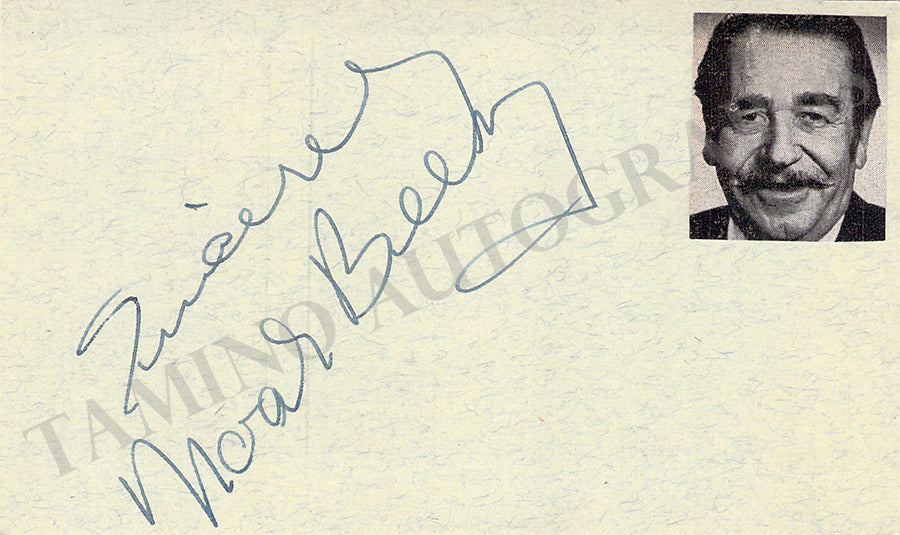 Sincerely
Noah Beery
TAMINO AUTOGRAPHS